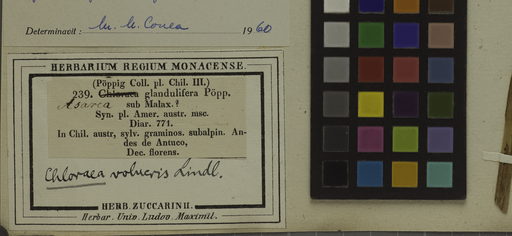 Determinavit: M. N. Correa 1960
HERBARIUM REGIUM MONACENSE.
(Pöppig Coll. pl. Chil. III.)
239. Chloraea glandulifera Pöpp.
Asarca sub Malax.?
Syn. pl. Amer. austr. msc.
Diar. 771.
In Chil. austr, sylv. graminos. subalpin. An-
des de Antuco,
Dec. florens.
Chloraea volucris Lindl.
HERB. ZUCCARINII.
Herbar. Univ. Ludov. Maximil.